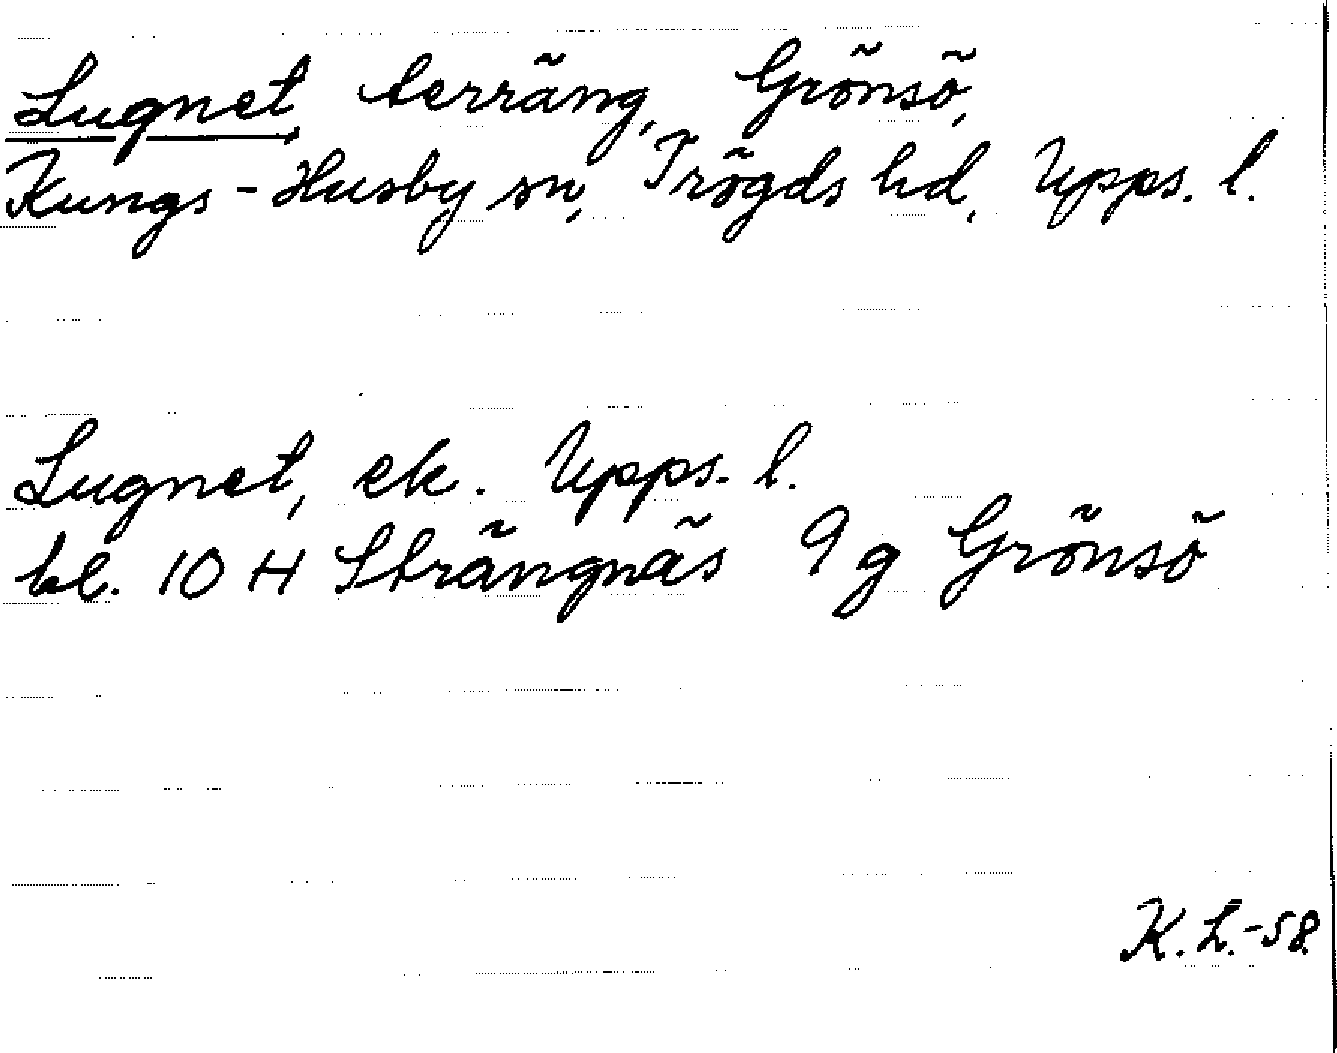 Lugnet, terräng, Grönsö,
Kungs-Husby sn, Trögds hd, Upps. l.
Lugnet, ek. Upps. l.
bl. 10 H Strängnäs 9 g Grönsö
K. L. -58